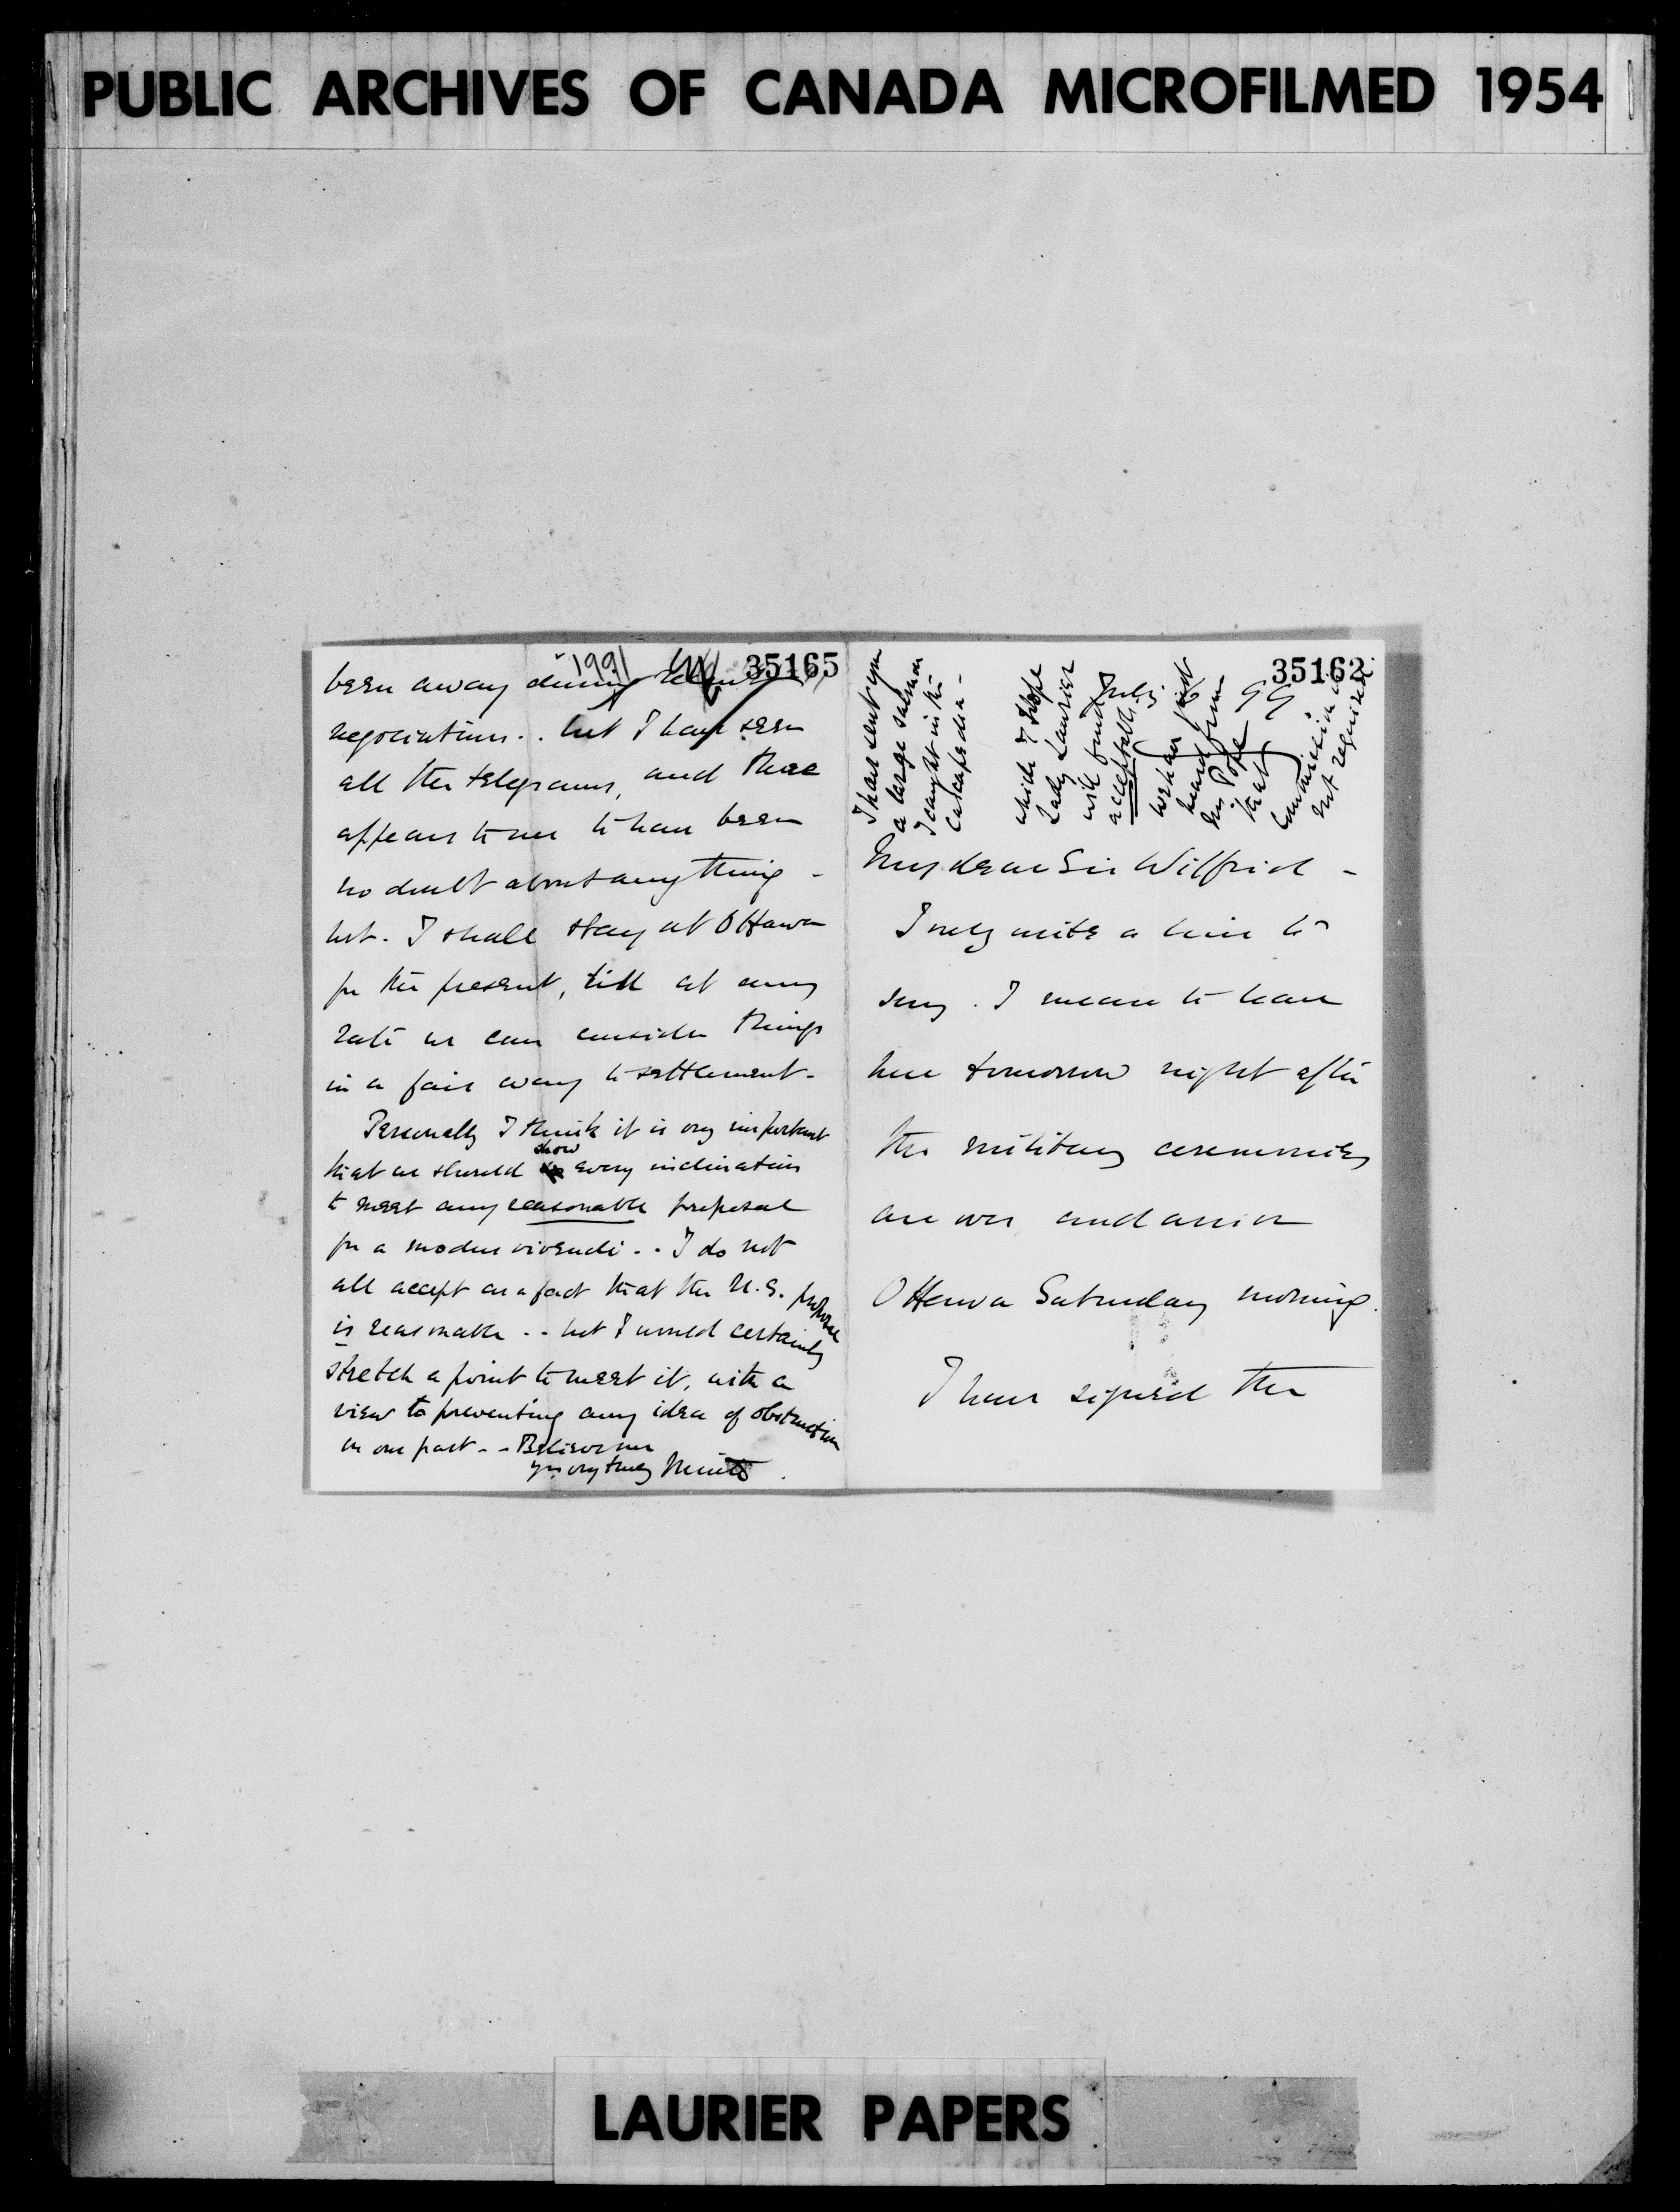 PUBLIC ARCHIVES OF CANADA MICROFILMED 1954
1991
35165
been away during
negociations.. but I have seen
all the telegrams, and there
appears to me to have been
no doubt about anything -
but. I shall stay at Ottawa
for the present, till at any
rate we can consider things
in a fair way to settlement -
Personally I think it is very important
show
that we should every inclination
to meet any reasonable proposal
for a modus vivendi.. I do not
all accept as a fact that the U.S. proposal
is reasonable .. but I would certainly
stretch a point to meet it, with a
view to preventing any idea of obstruction
on our part - - Believe me
yrs very truly Minto.
35162
I have sent you
a large salmon
I caught in the
Cascapedia -
which I hope
Lady Laurier
will find
acceptable
we have just
heard from
Mr Pope
that
Commission is
not required
July
99
My dear Sir Wilfrid -
I only write a line to
say. I mean to leave
here tomorrow night after
the military ceremonies
are over and arrive
Ottawa Saturday morning.
I have signed the
LAURIER PAPERS